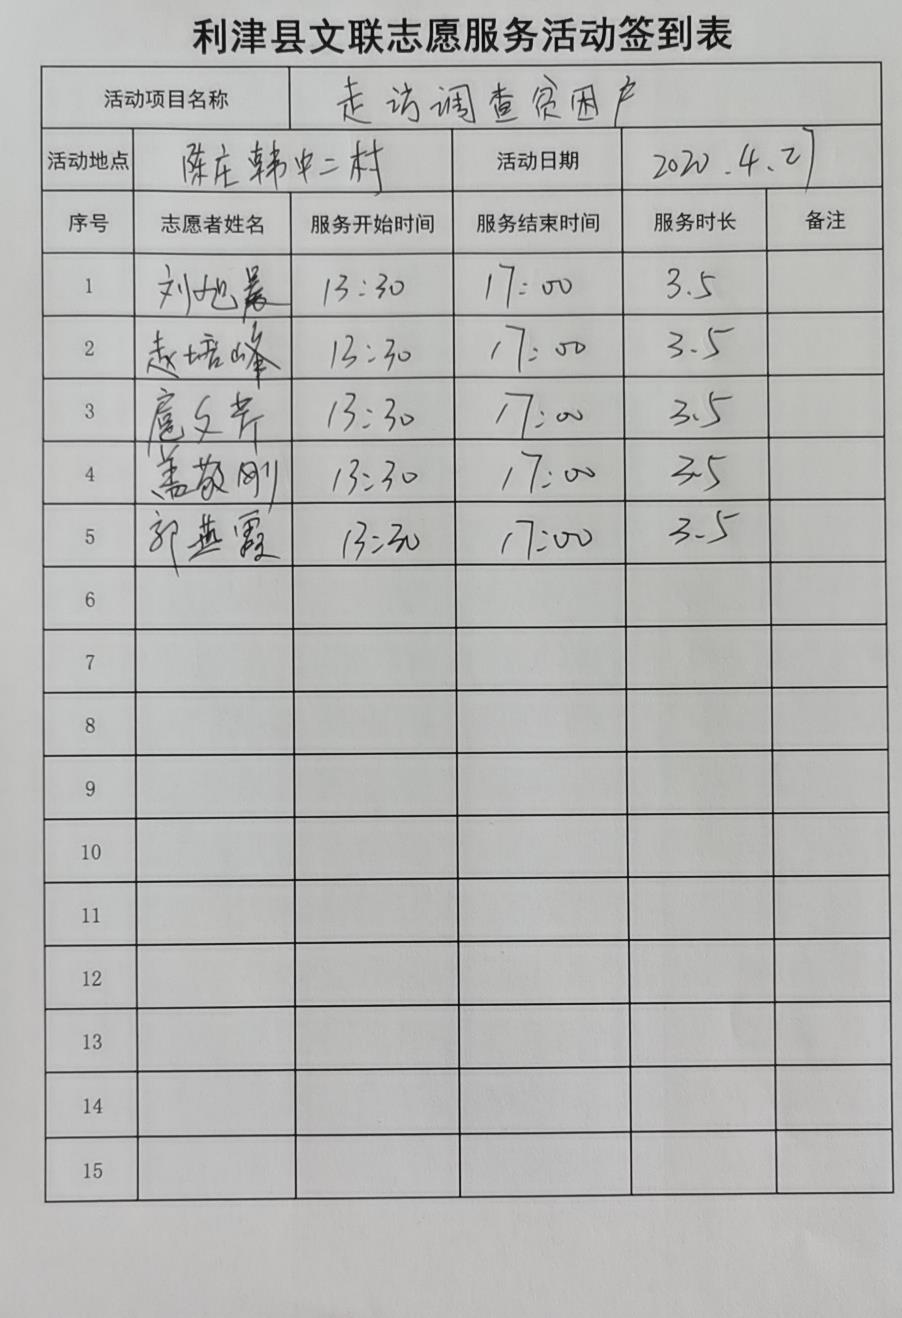 利津县文联志愿服务活动签到表
活动项目名称 走访调查贫困户
活动地点 陈庄韩中二村 活动日期 2020.4.27
序号 志愿者姓名 服务开始时间 服务结束时间 服务时长 备注
1 刘旭晨 13:30 17:00 3.5
2 赵培峰 13:30 17:00 3.5
3 扈文芹 13:30 17:00 3.5
4 盖敬刚 13:30 17:00 3.5
5 郭燕霞 13:30 17:00 3.5
6
7
8
9
10
11
12
13
14
15